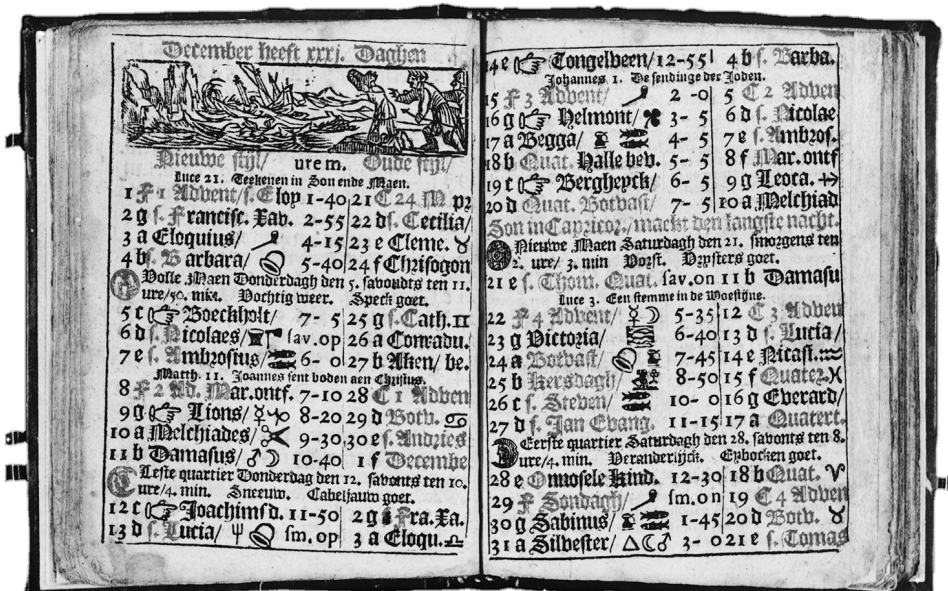 December heeft xxxj. Daghen
Nieuwe stijl/ ure m. Oude stijl/
Luce 21. Teekenen in Son ende Maen.
1 F 1 Advent/ s. Eloy 1-40 21 C 24 N pz
2 g s. Francisc. Xav. 2-55 22 d s. Cecilia/
3 a Eloquius/ 4-15 23 e Cleme. ♉
4 b s. Barbara/ 5-40 24 f Chrisogon
Volle Maen Donderdagh den 5. savondts ten 11.
ure/50. min. Vochtig weer. Speck goet.
5 c ☞ Boeckholt/ 7- 5 25 g s. Cath. ♊
6 d s. Nicolaes/ sav.op 26 a Conradu.
7 e s. Ambrosius/ 6- 0 27 b Aken/ be.
Matth. 11. Joannes sent boden aen Christus.
8 F 2 Ad. Mar.ontf. 7-10 28 C 1 Adven
9 g ☞ Lions/ ☿ ♑ 8-20 29 d Botv. ♋
10 a Melchiades/ 9-30 30 e s. Andries
11 b Damasus/ ♂ ☽ 10-40 1 f Decembe
Leste quartier Donderdag den 12. savonts ten 10.
ure/4. min. Sneeuw. Cabeljauw goet.
12 c ☞ Joachimsd. 11-50 2 g Fra.Xa.
13 d s. Lucia/ sm.op 3 a Eloqu. ♎
14 e ☞ Tongelveen/ 12-55 4 b s. Barba.
Johannes 1. De sendinge der Joden.
15 F 3 Advent/ 2 -0 5 C 2 Adven
16 g ☞ Helmont/ 3- 5 6 d s. Nicolae
17 a Begga/ 4- 5 7 e s. Ambros.
18 b Quat. Halle bev. 5- 5 8 f Mar.ontf
19 c ☞ Bergheyck/ 6- 5 9 g Leoca. ♐
20 d Quat. Botvast/ 7- 5 10 a Melchiad
Son in Capricor./ maeckt den langste nacht.
Nieuwe Maen Saturdagh den 21. smorgens ten
2. ure/ 3. min Vorst. Vysters goet.
21 e s. Thom. Quat. sav.on 11 b Damasu
Luce 3. Een stemme in de Woestijne.
22 F 4 Advent/ ☿ ☽ 5-35 12 C 3 Adven
23 g Victoria/ 6-40 13 d s. Lucia/
24 a Botvast/ 7-45 14 e Nicasi. ♒
25 b Kersdagh/ 8-50 15 f Quater. ♓
26 c s. Steven/ 10- 0 16 g Everard/
27 d s. Jan Evang. 11-15 17 a Quatert.
Eerste quartier Saturdagh den 28. savonts ten 8.
ure/4. min. Veranderlijck. Eybocken goet.
28 e Onnosele kind. 12-30 18 b Quat. ♈
29 F Sondagh/ sm.on 19 C 4 Adven
30 g Sabinus/ 1-45 20 d Botv. ♉
31 a Silvester/ △ ☾ ♂ 3- 0 21 e s. Tomas